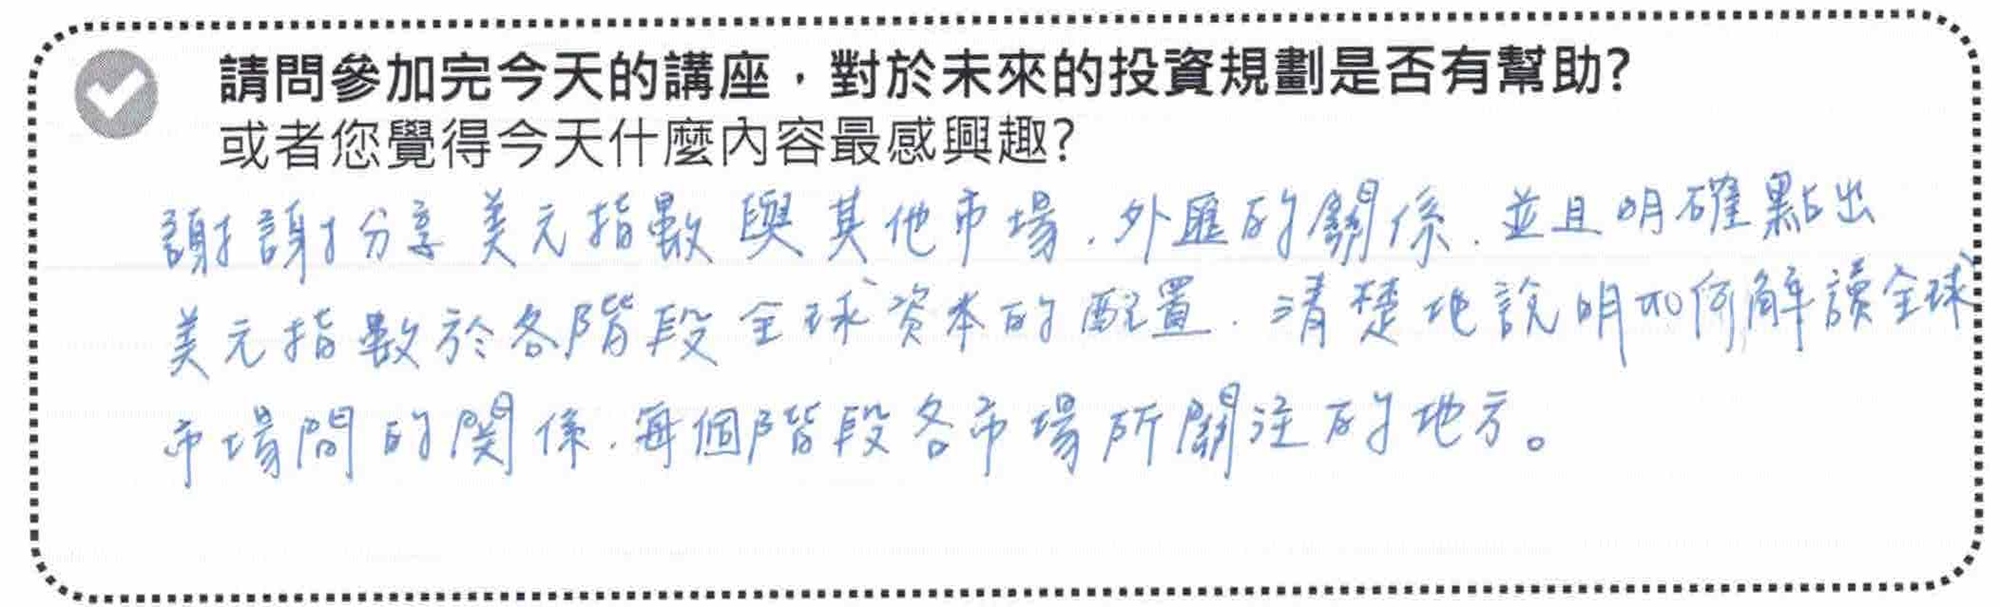 請問參加完今天的講座，對於未來的投資規劃是否有幫助?
或者您覺得今天什麼內容最感興趣?
謝謝分享美元指數與其他市場、外匯的關係、並且明確點出
美元指數於各階段全球資本的配置、清楚地說明如何解讀全球
市場間的關係、每個階段各市場所關注的地方。